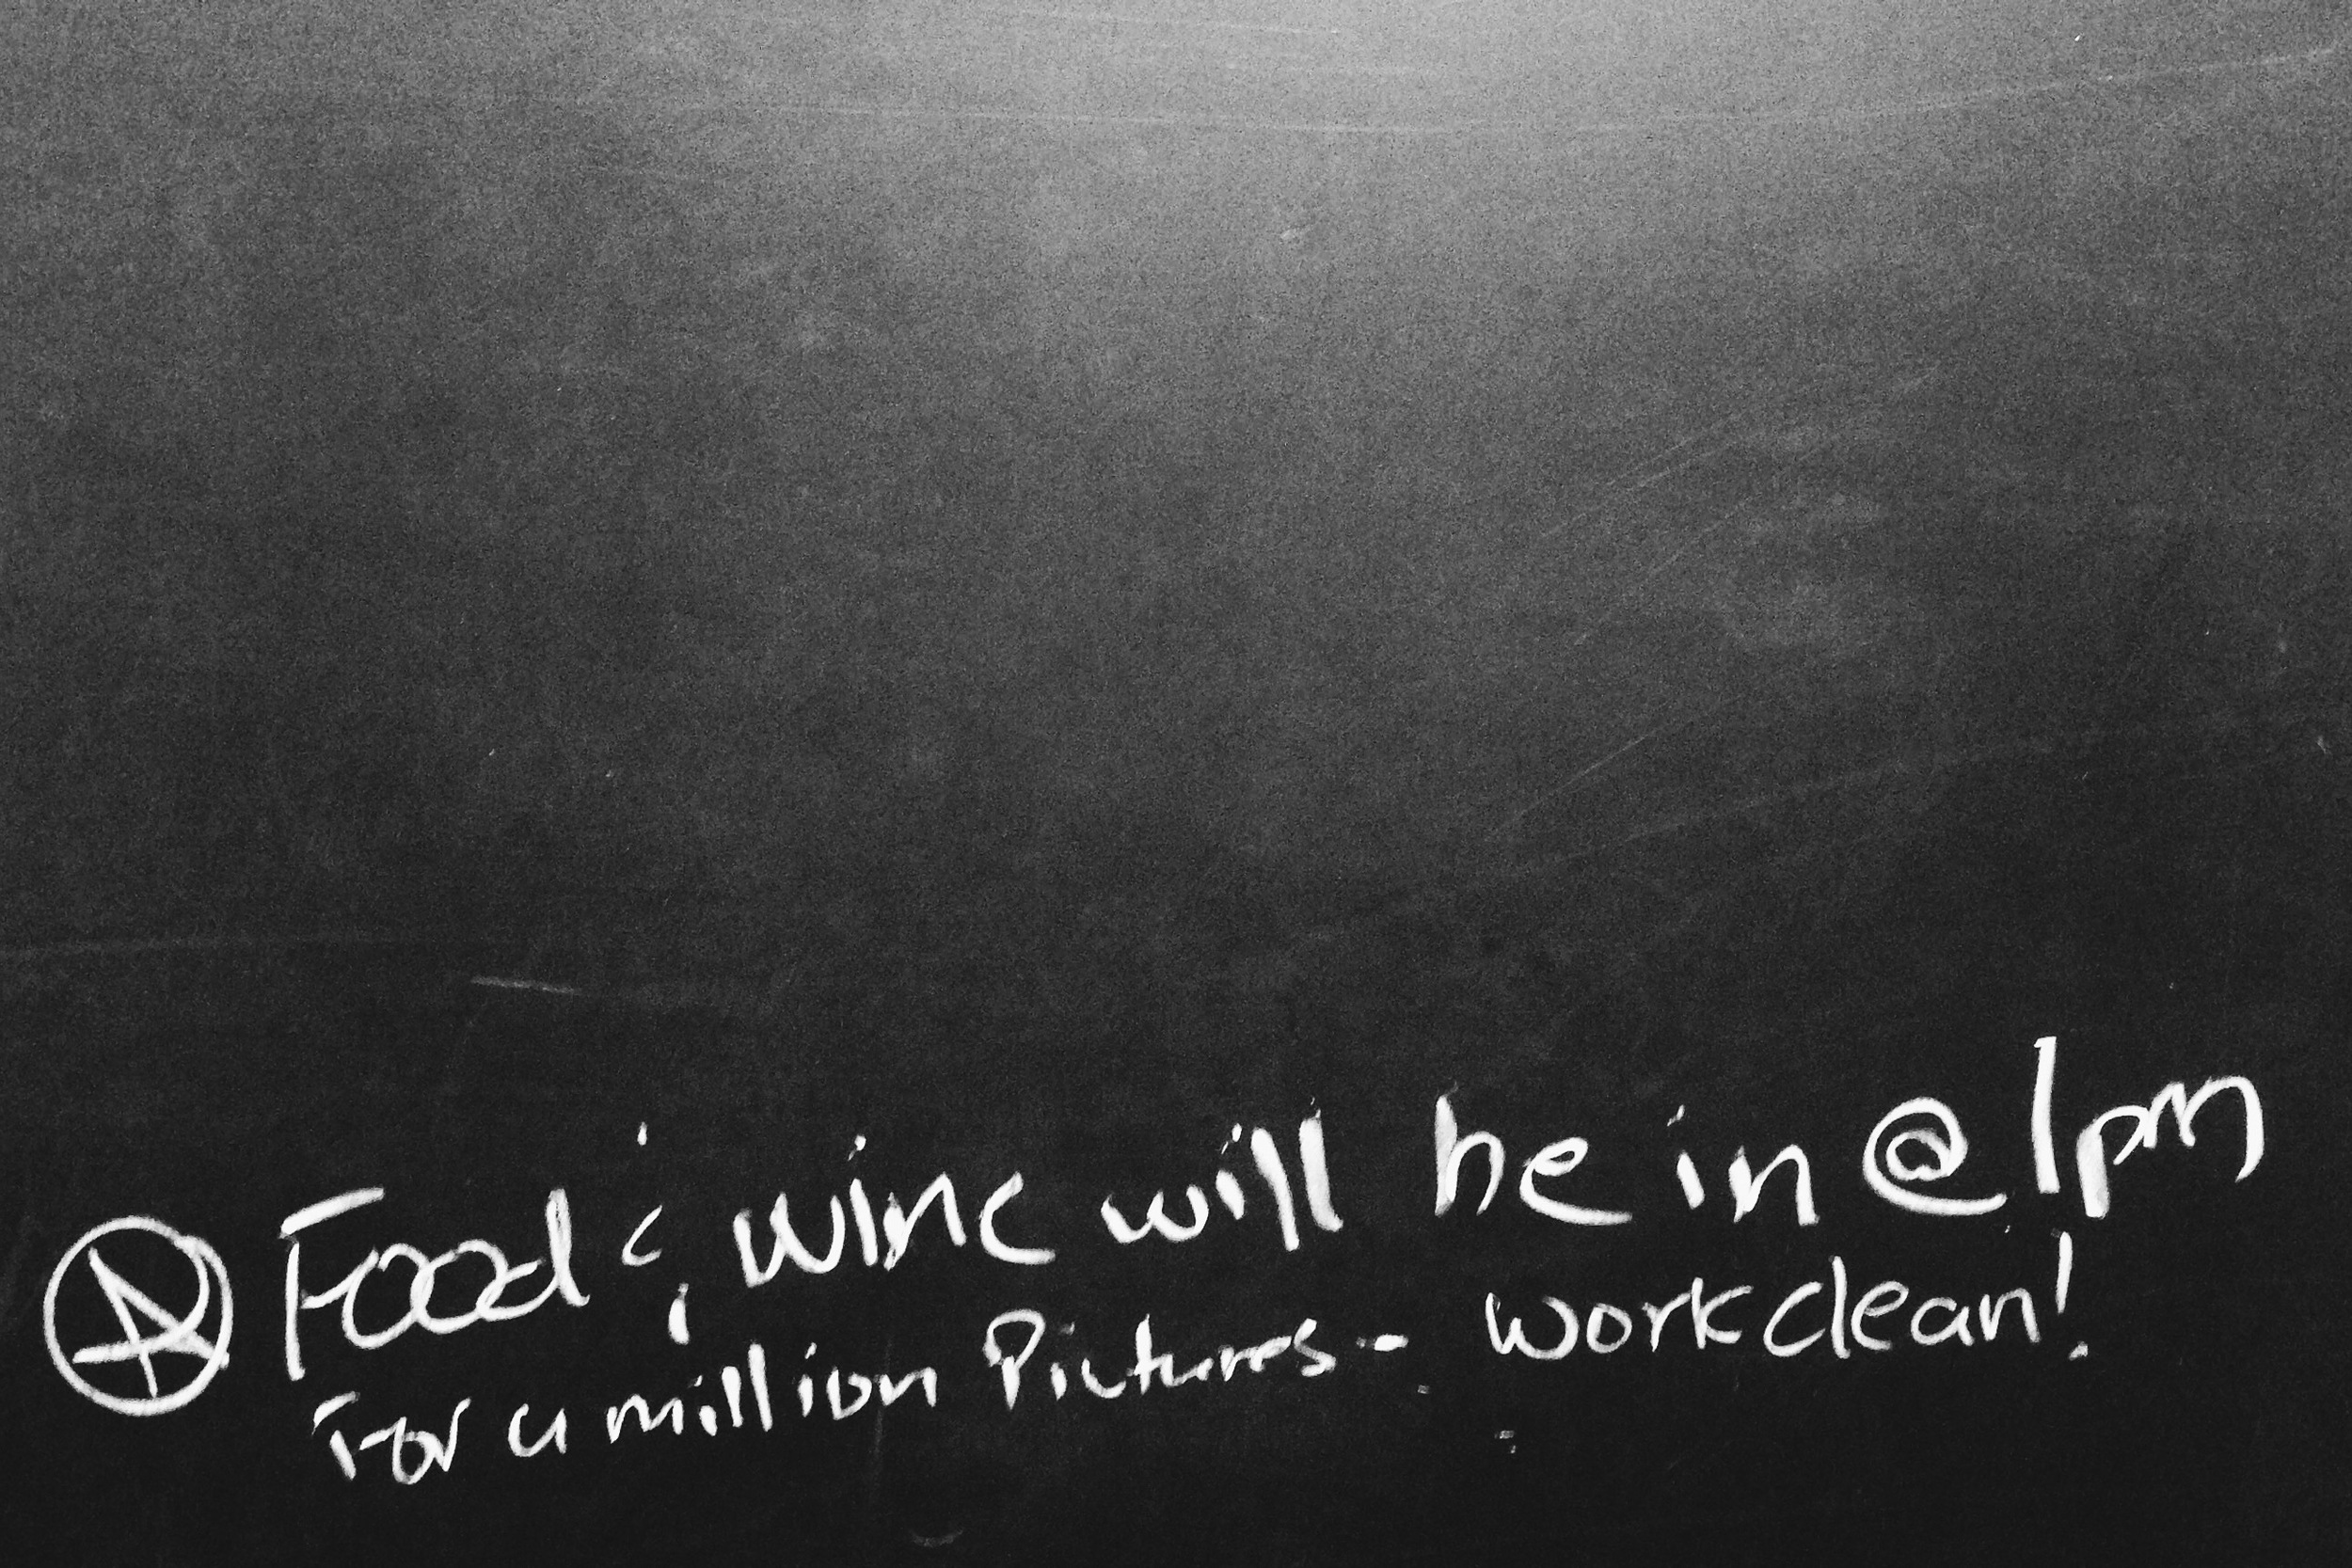 Food & Wine will be in @ 1pm
For a million Pictures - work clean!